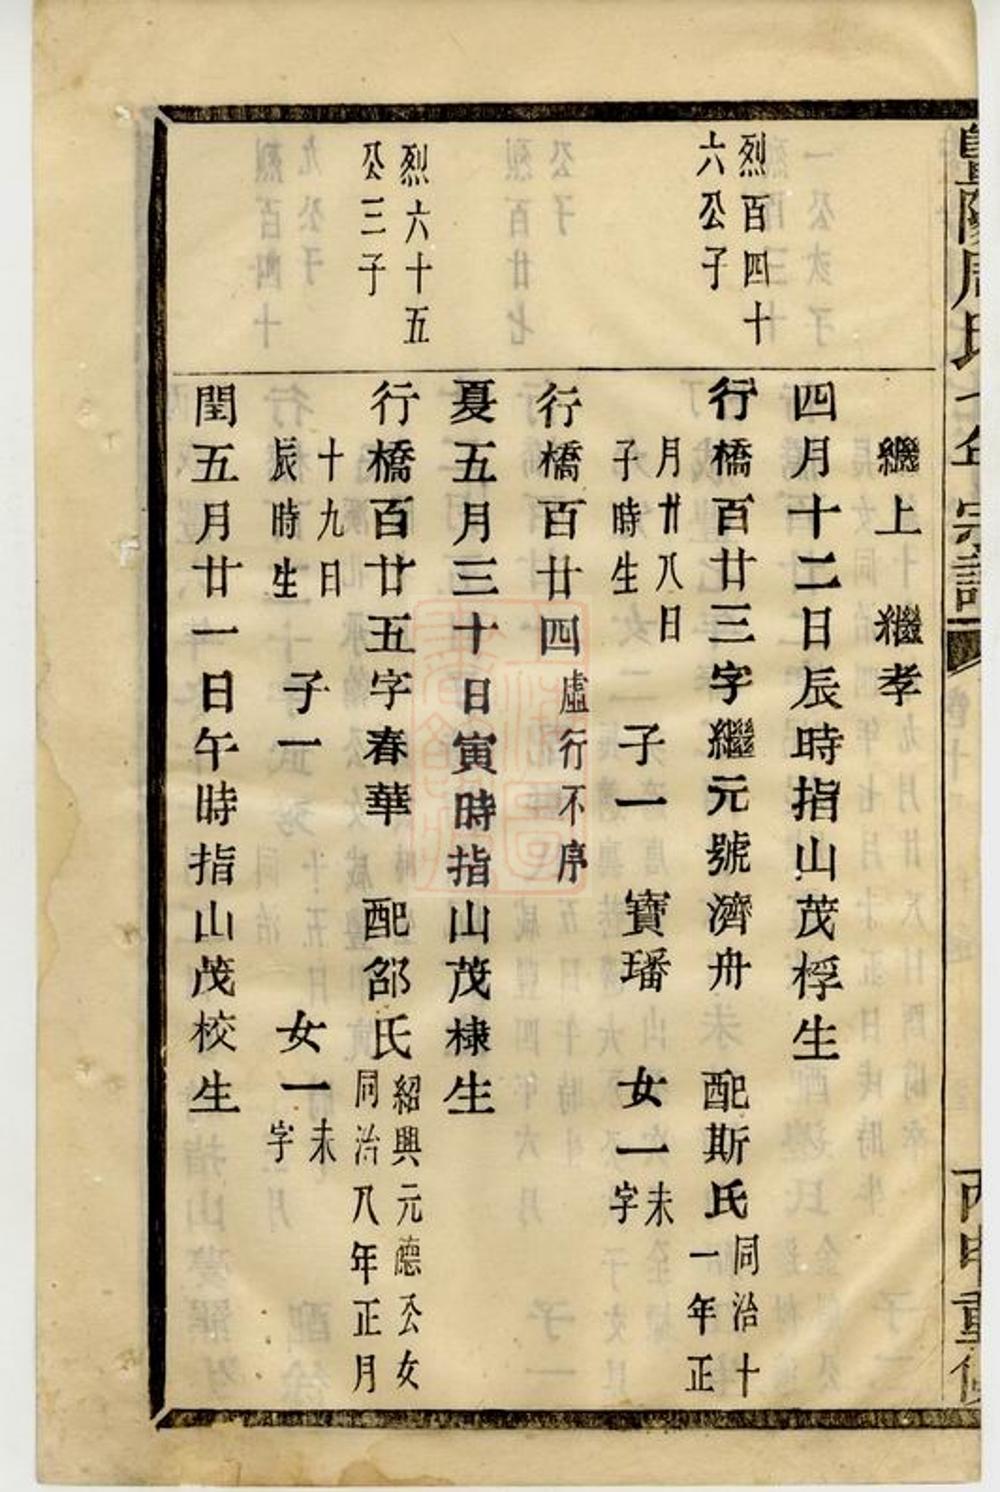 暨陽周氏
宗譜
丙申重修
繼上　繼孝
四月十二日辰時指山茂桴生
烈百四十
六公子
行橋百廿三字繼元號濟舟　配斯氏
同治十
一年正
月廿八日
子時生
子一　寶璠　女一
未
字
行橋百廿四
虛行不序
夏五月三十日寅時指山茂棣生
烈六十五
公三子
行橋百廿五字春華　配邵氏
紹興元德公女
同治八年正月
十九日
辰時生
子一　女一
未
字
閏五月廿一日午時指山茂校生